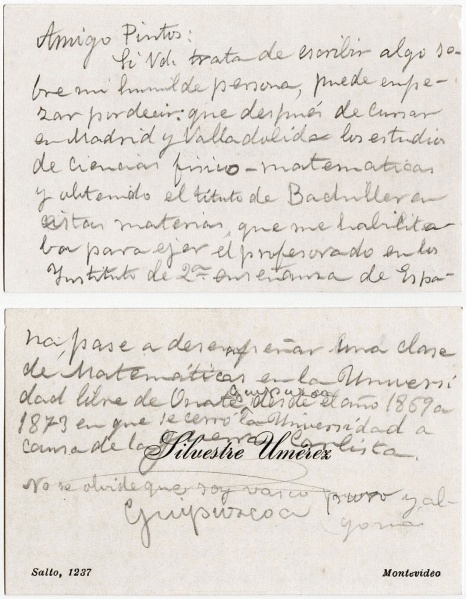 Amigo Pintos:
Si Vd. trata de escribir algo so-
bre mi humilde persona, puede empe-
zar por decir: que después de cursar
en Madrid y Valladolid los estudios
de ciencias físico-matematicas
y obtenido el título de Bachiller en
estas materias, que me habilita
ba para ejer el profesorado en los
Instituto de 2ª enseñanza de Espa-
ña, pase a desempeñar una clase
de Matemáticas en la Universi
dad libre de Oñate Guipuzcoa desde el año 1869 a
1873 en que se cerró la Universidad a
causa de la guerra Carlista.
Silvestre Umérez
No se olvide que soy vasco puro y al-
Guipuzcoa
Salto, 1237
Montevideo